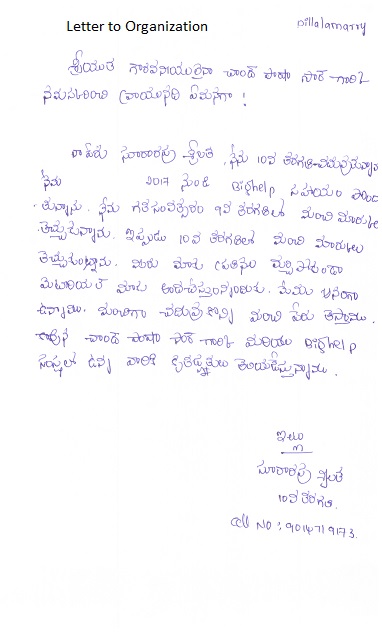 Letter to Organization
pillalamarry
శ్రీయుత గౌరవనీయులైన చాంద్ పాషా సార్ గారికి
నమస్కరించి వ్రాయునది ఏమనగా !
నా పేరు సూరారపు శ్రీలత , నేను 10వ తరగతి చదువుతున్నాను
నేను 2017 నుండి Bighelp సహాయం పొందు
తున్నాను . నేను గత సంవత్సరం 9వ తరగతిలో మంచి మార్కులు
తెచ్చుకున్నాను . ఇప్పుడు 10వ తరగతిలో మంచి మార్కులు
తెచ్చుకుంటాను . మీరు మాకు ప్రతిసారి తప్పకుండా
మెటీరియల్ మాకు అందిస్తున్నందుకు . మేము ఆనందంగా
ఉన్నాము . మంచిగా చదువుకొన్ని మంచి పేరు తెస్తాము .
చాంద్ పాషా సార్ గారికి మరియు Bighelp
సంస్థలో ఉన్న వారికి కృతజ్ఞతలు తెలియజేస్తున్నాము .
ఇట్లు
సూరారపు శ్రీలత
10వ తరగతి.
Cell NO : 9014719173.